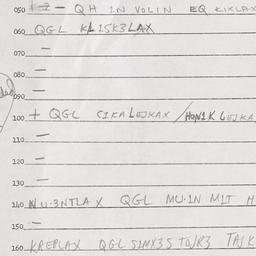 050 — QH IN VOLIN EQ KIKLAX
060 QGL KLISK3LAX
070 —
080 —
090 —
100 + QGL CIKALEJKAX / HONIK LEJKA
110 —
120 —
130 —
140 NU·3NTLAX QGL MU·IN MIT H
150 —
160 KREPLAX QGL SIMX3S TAJK